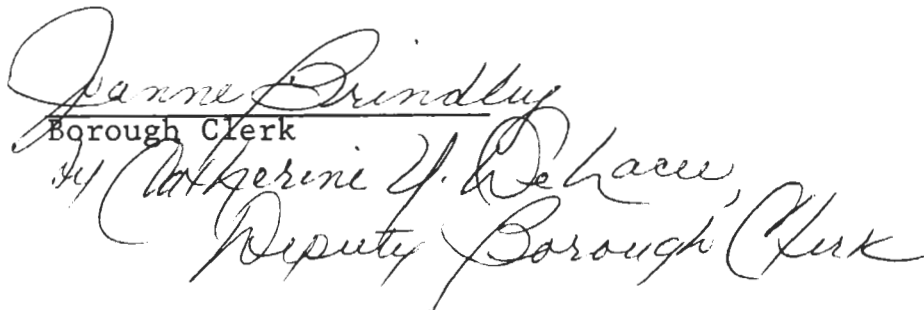 Jeanne Brindley
Borough Clerk
by Catherine Y. DeLacee,
Deputy Borough Clerk